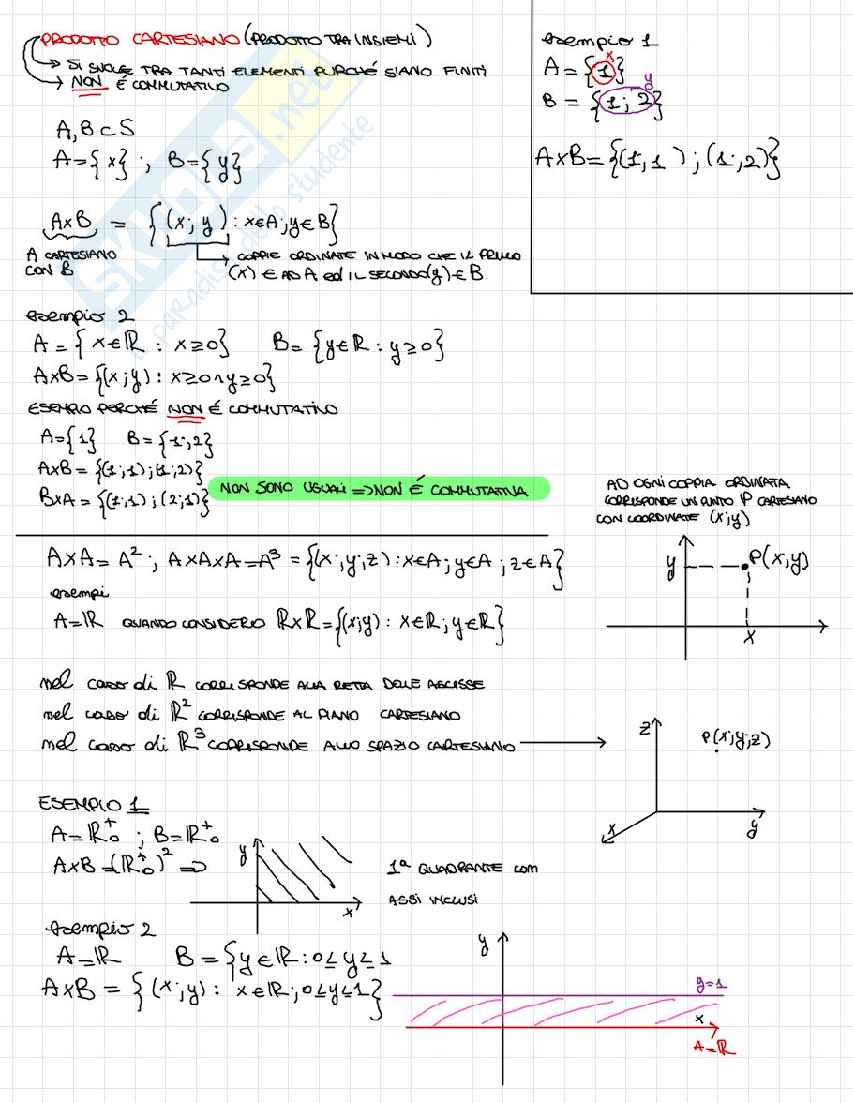 PRODOTTO CARTESIANO (PRODOTTO TRA INSIEMI)
→ SI SVOLGE TRA TANTI ELEMENTI PURCHÉ SIANO FINITI
→ NON É COMMUTATIVO
A,B ⊂ S
A={x} ; B={y}
A×B = {(x; y) : x∈A ; y∈B}
A CARTESIANO
CON B
→ COPPIE ORDINATE IN MODO CHE IL PRIMO
(x) ∈ AD A ed IL SECONDO (y) ∈ B
esempio 1
x
A = {1}
y
B = {1; 2}
A×B={(1,1) ; (1;,2)}
esempio 2
A = {x∈ℝ : x≥0} B= {y∈ℝ : y≥0}
A×B={(x;y) : x≥0 ∧ y≥0}
ESEMPIO PERCHÉ NON É COMMUTATIVO
A={1} B={1;,2}
A×B = {(1;1);(1;2)}
B×A = {(1;1) ; (2;1)}
NON SONO UGUALI ⇒ NON É COMMUTATIVA
AD OGNI COPPIA ORDINATA
CORRISPONDE UN PUNTO P CARTESIANO
CON COORDINATE (x;y)
y P(x,y)
x
A×A= A² ; A×A×A=A³ = {(x;,y;z) : x∈A ; y∈A ; z∈A}
esempi
A=ℝ QUANDO CONSIDERO ℝ×ℝ={(x;y) : x∈ℝ ; y∈ℝ}
nel caso di ℝ CORRISPONDE ALLA RETTA DELLE ASCISSE
nel caso di ℝ² CORRISPONDE AL PIANO CARTESIANO
nel caso di ℝ³ CORRISPONDE ALLO SPAZIO CARTESIANO →
z P(x;y;z)
x y
ESEMPIO 1
A=ℝ₀⁺ ; B=ℝ₀⁺
A×B=(ℝ₀⁺)² ⇒
y
x
1ª QUADRANTE con
ASSI INCLUSI
esempio 2
A=ℝ B = {y∈ℝ : 0≤y≤1
A×B = {(x;y) : x∈ℝ ; 0≤y≤1}
y
y=1
x
A=ℝ
SKUOLA.net
il paradiso dello studente